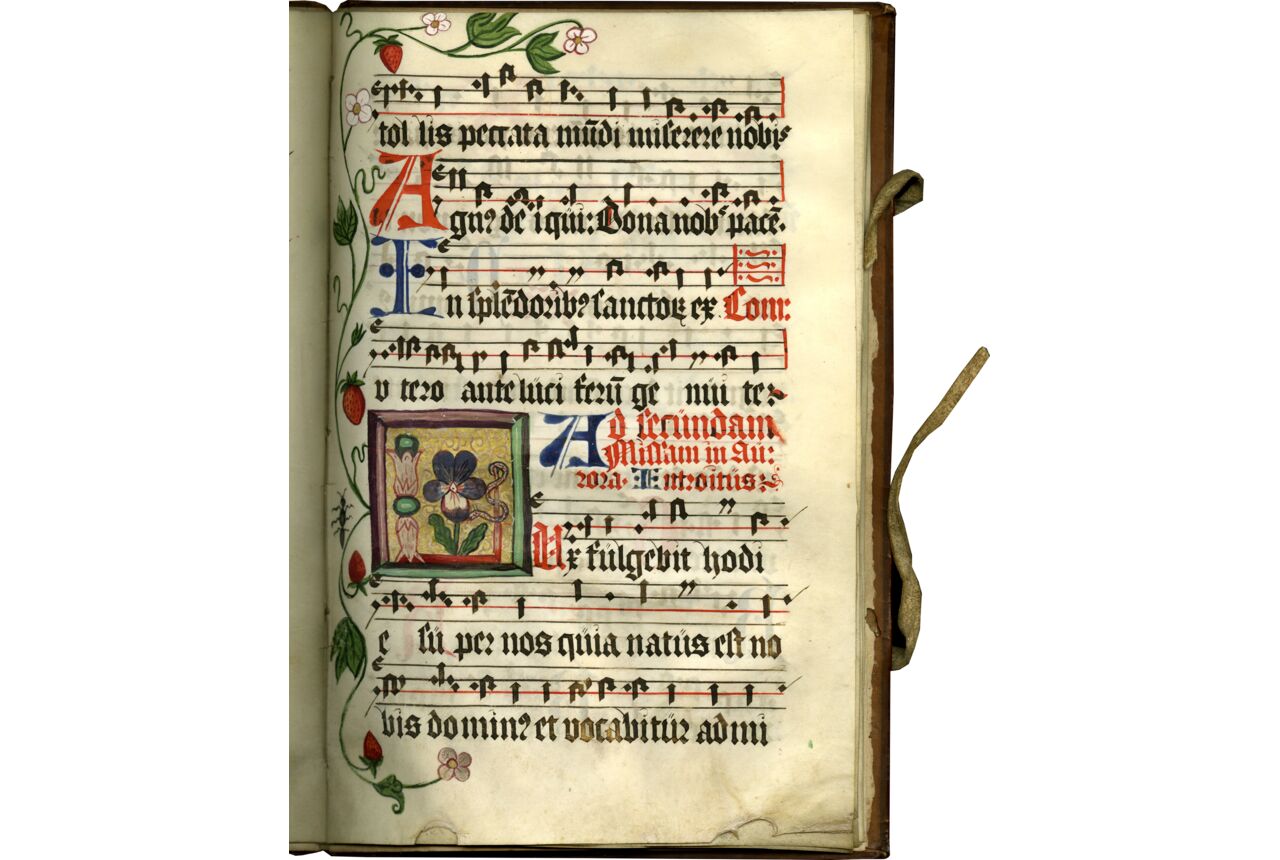 tol lis peccata mu̅di miserere nobis
Agnꝰ de̅ i qui: Dona nobˢ pace̅.
In sple̅doribꝰ sanctoꝝ ex Com:
v tero ante luci feru̅ ge nui te.
Ad secundam
Missam in Au:
rora. Introitus:
Lux fulgebit hodi
e su per nos quia natus est no
bis dominꝰ et vocabitur admi